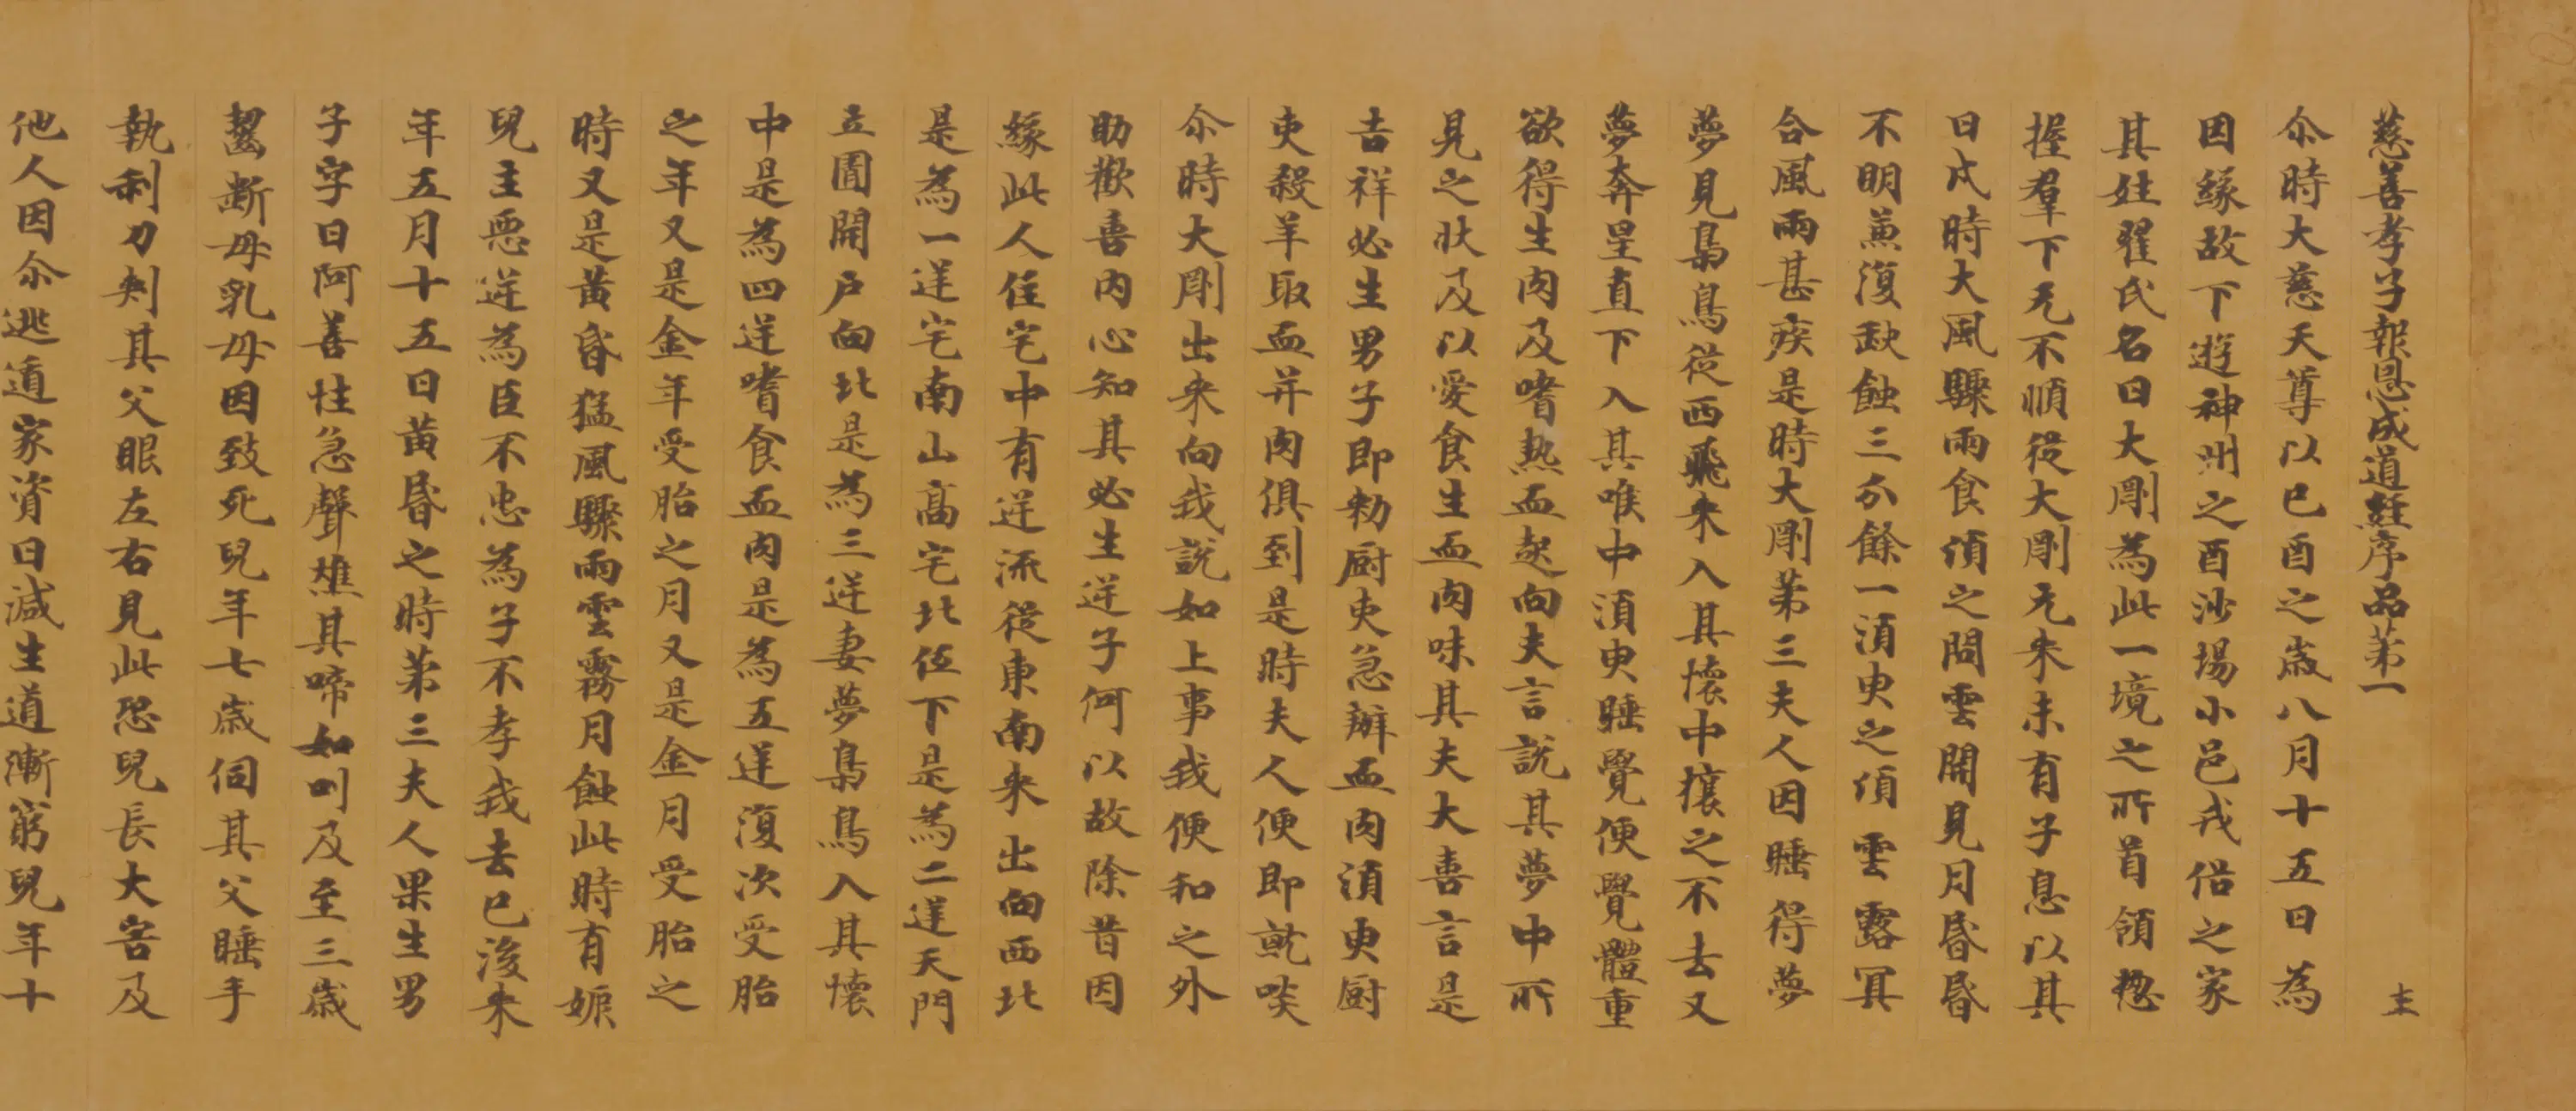 慈善孝子報恩成道經序品苐一 圭
尒時大慈天尊以巳酉之歲八月十五日為
因緣故下遊神州之酉沙場小邑戎俗之家
其姓翟氏名曰大剛為此一境之所首領惣
握羣下无不順從大剛无來未有子息以其
日戌時大風驟雨食頃之間雲開見月昏昏
不明兼復蝕蝕三分餘一湏臾之頃雲露冥
合風雨甚疾是時大剛苐三夫人因睡得夢
夢見梟鳥從西飛來入其懷中攘之不去又
夢奔星直下入其喉中湏臾睡覺便覺體重
欲得生肉及嗜熱血起向夫言說其夢中所
見之狀及以愛食生血肉味其夫大喜言是
吉祥必生男子即勑厨吏急辦血肉湏臾厨
吏殺羊取血并肉俱到是時夫人便即就啖
尒時大剛出來向我說如上事我便和之外
助歡喜內心知其必生逆子何以故除昔因
緣此人住宅中有逆流從東南來出向西北
是為一逆宅南山高宅北伍下是為二逆天門
立圊開户向北是為三逆妻夢梟鳥入其懷
中是為四逆嗜食血肉是為五逆復次受胎
之年又是金年受胎之月又是金月受胎之
時又是黃昏猛風驟雨雲霧月蝕此時有娠
兒主惡逆為臣不忠為子不孝我去已後來
年五月十五日黃昏之時苐三夫人果生男
子字曰阿善性急聲燋其啼如叫及至三歲
齧斷母乳母因致死兒年七歲伺其父睡手
執利刀刾其父眼左右見此恐兒長大害及
他人因尒逃遁家資日減生道漸窮兒年十